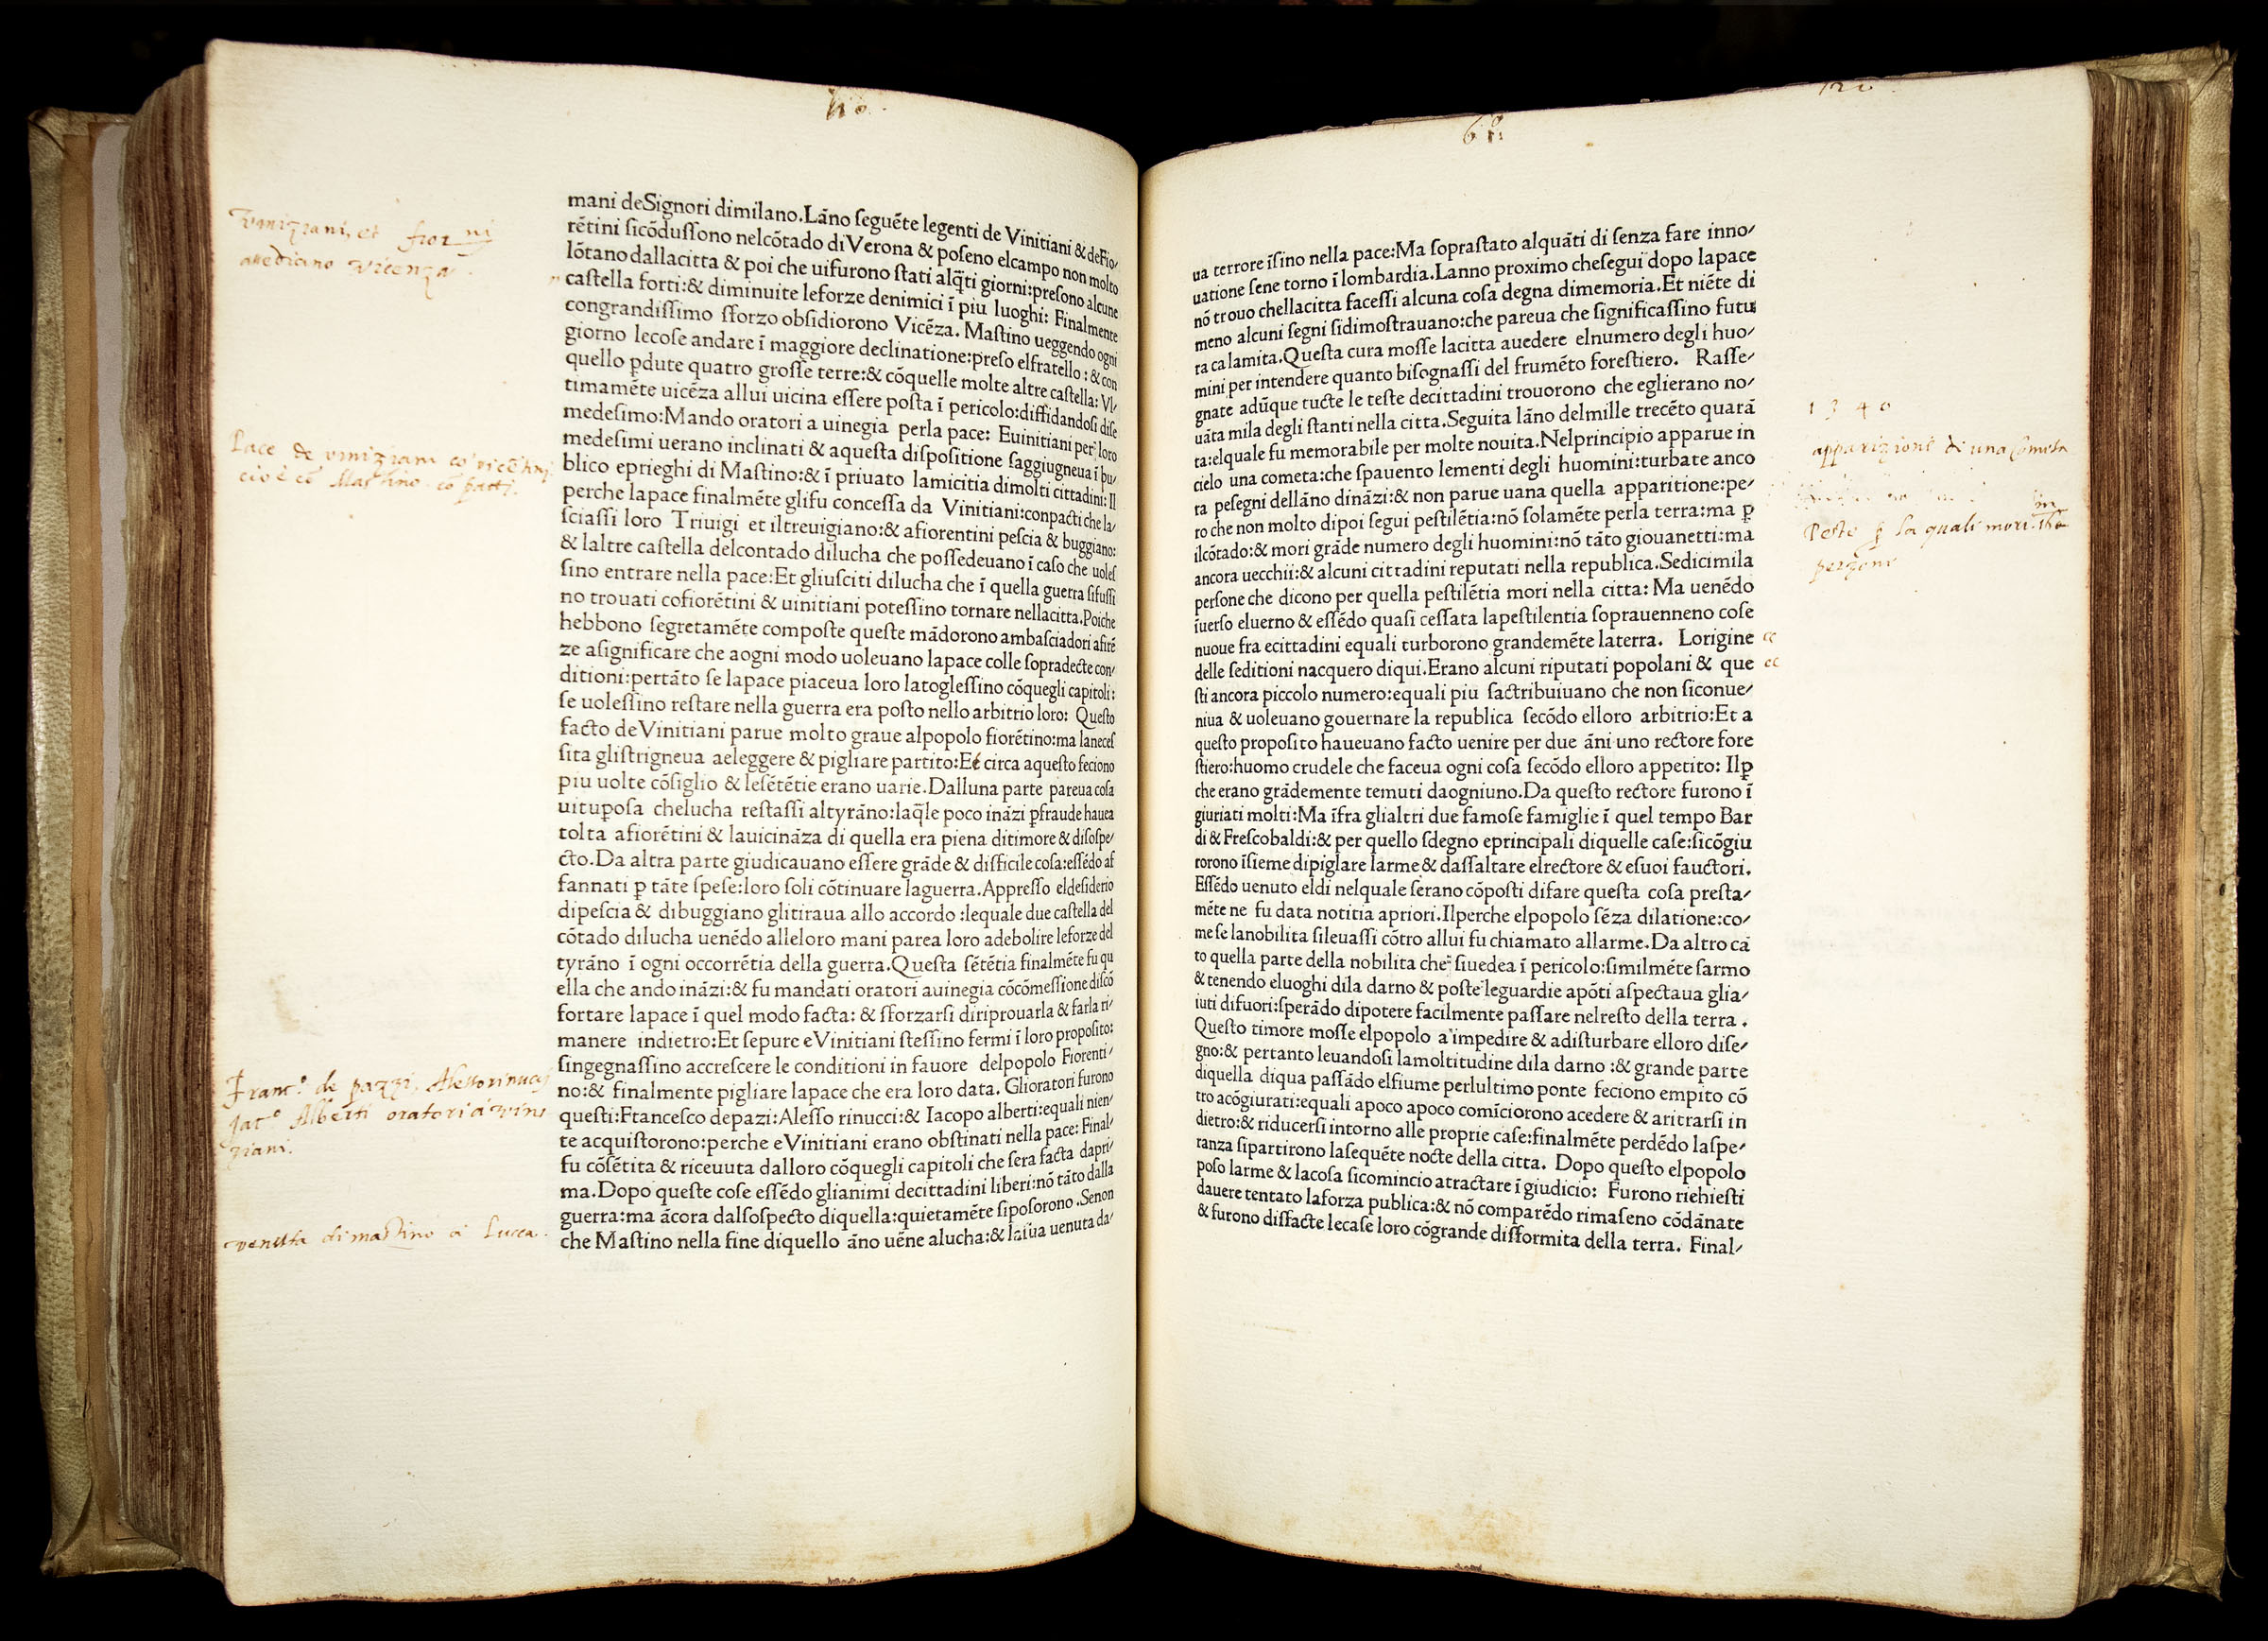 mani deSignori dimilano.Lāno ſeguēte legenti de Vinitiani &deFio/
rētini ſicōduſſono nelcōtado diVerona & poſeno elcampo non molto
lōtano dallacitta & poi che uifurono ſtati alq̄ti giorni:preſono alcune
caſtella forti:& diminuite leforze denimici ī piu luoghi: Finalmente
congrandiſſimo ſforzo obſidiorono Vicēza. Maſtino ueggendo ogni
giorno lecoſe andare ī maggiore declinatione:preſo elfratello : & con
quello ꝑdute quatro groſſe terre:& cōquelle molte altre caſtella: Vl/
timamēte uicēza allui uicina eſſere poſta ī pericolo:diffidandoſi diſe
medeſimo:Mando oratori a uinegia perla pace: Euinitiani per loro
medeſimi uerano inclinati & aqueſta diſpoſitione ſaggiugneua ī pu/
blico eprieghi di Maſtino:& ī priuato lamicitia dimolti cittadini: Il
perche lapace finalmēte glifu conceſſa da Vinitiani:conpacti che la/
ſciaſſi loro Triuigi et iltreuigiano:& afiorentini peſcia & buggiano:
& laltre caſtella delcontado dilucha che poſſedeuano ī caſo che uoleſ
ſino entrare nella pace:Et gliuſciti dilucha che ī quella guerra ſifuſſi
no trouati cofiorētini & uinitiani poteſſino tornare nellacitta.Poiche
hebbono ſegretamēte compoſte queſte mādorono ambaſciadori afirē
ze aſignificare che aogni modo uoleuano lapace colle ſopradecte con/
ditioni:pertāto ſe lapace piaceua loro latogleſſino cōquegli capitoli:
ſe uoleſſino reſtare nella guerra era poſto nello arbitrio loro: Queſto
facto deVinitiani parue molto graue alpopolo fiorētino:ma laneceſ
ſita gliſtrigneua aeleggere & pigliare partito:Et circa aqueſto feciono
piu uolte cōſiglio & leſētētie erano uarie.Dalluna parte pareua coſa
uituꝑoſa chelucha reſtaſſi altyrāno:laq̄le poco ināzi ꝑfraude hauea
tolta afiorētini & lauicināza di quella era piena ditimore & diſoſpe/
cto.Da altra parte giudicauano eſſere grāde & difficile coſa:eſſēdo af
fannati ꝑ tāte ſpeſe:loro ſoli cōtinuare laguerra.Appreſſo eldeſiderio
dipeſcia & dibuggiano glitiraua allo accordo :lequale due caſtella del
cōtado dilucha uenēdo alleloro mani parea loro adebolire leforze del
tyrāno ī ogni occorrētia della guerra.Queſta ſētētia finalmēte fu qu
ella che ando ināzi:& fu mandati oratori auinegia cōcōmeſſione diſcō
fortare lapace ī quel modo facta: & ſforzarſi diriprouarla & farla ri/
manere indietro:Et ſepure eVinitiani ſteſſino fermi ī loro propoſito:
ſingegnaſſino accreſcere le conditioni in fauore delpopolo Fiorenti/
no:& finalmente pigliare lapace che era loro data. Glioratori furono
queſti:Ftanceſco depazi:Aleſſo rinucci:& Iacopo alberti:equali nien/
te acquiſtorono:perche eVinitiani erano obſtinati nella pace: Final/
fu cōſētita & riceuuta dalloro cōquegli capitoli che ſera facta dapri/
ma.Dopo queſte coſe eſſēdo glianimi decittadini liberi:nō tāto dalla
guerra:ma ācora dalſoſpecto diquella:quietamēte ſipoſorono .Senon
che Maſtino nella fine diquello āno uēne alucha:& laſua uenuta da/
Viniziani, et fior ni
assediano Vicenza.
Pace de viniziani
cioè cō Mastino cō patti.
Franc.o de pazzi,
Jac.o Alberti oratori a vini
ziani.
venuta di mastino a Lucca.
61
ua terrore īſino nella pace:Ma ſopraſtato alquāti di ſenza fare inno/
uatione ſene torno ī lombardia.Lanno proximo cheſegui dopo lapace
nō trouo chellacitta faceſſi alcuna coſa degna dimemoria.Et niēte di
meno alcuni ſegni ſidimoſtrauano:che pareua che ſignificaſſino futu
ra calamita.Queſta cura moſſe lacitta auedere elnumero degli huo/
mini per intendere quanto biſognaſſi del frumēto foreſtiero. Raſſe/
gnate adūque tucte le teſte decittadini trouorono che eglierano no/
uāta mila degli ſtanti nella citta.Seguita lāno delmille trecēto quarā
ta:elquale fu memorabile per molte nouita.Nelprincipio apparue in
cielo una cometa:che ſpauento lementi degli huomini:turbate anco
ra peſegni dellāno dināzi:& non parue uana quella apparitione:pe/
ro che non molto dipoi ſegui peſtilētia:nō ſolamēte perla terra:ma ꝑ
ilcōtado:& mori grāde numero degli huomini:nō tāto giouanetti:ma
ancora uecchii:& alcuni cittadini reputati nella republica.Sedicimila
perſone che dicono per quella peſtilētia mori nella citta: Ma uenēdo
īuerſo eluerno & eſſēdo quaſi ceſſata lapeſtilentia ſoprauenneno coſe
nuoue fra ecittadini equali turborono grandemēte laterra. Lorigine
delle ſeditioni nacquero diqui.Erano alcuni riputati popolani & que
ſti ancora piccolo numero:equali piu ſactribuiuano che non ſiconue/
niua & uoleuano gouernare la republica ſecōdo elloro arbitrio:Et a
queſto propoſito haueuano facto uenire per due āni uno rectore fore
ſtiero:huomo crudele che faceua ogni coſa ſecōdo elloro appetito: Ilꝑ
che erano grādemente temuti daogniuno.Da queſto rectore furono ī
giuriati molti:Ma īfra glialtri due famoſe famiglie ī quel tempo Bar
di & Freſcobaldi:& per quello ſdegno eprincipali diquelle caſe:ſicōgiu
rorono īſieme dipiglare larme & daſſaltare elrectore & eſuoi fauctori.
Eſſēdo uenuto eldi nelquale ſerano cōpoſti difare queſta coſa preſta/
mēte ne fu data notitia apriori.Ilperche elpopolo ſēza dilatione:co/
me ſe lanobilita ſileuaſſi cōtro allui fu chiamato allarme.Da altro cā
to quella parte della nobilita che ſiuedea ī pericolo:ſimilmēte ſarmo
& tenendo eluoghi dila darno & poſte leguardie apōti aſpectaua glia/
iuti difuori:ſperādo dipotere facilmente paſſare nelreſto della terra .
Queſto timore moſſe elpopolo a impedire & adiſturbare elloro diſe/
gno:& pertanto leuandoſi lamoltitudine dila darno :& grande parte
diquella diqua paſſādo elfiume perlultimo ponte feciono empito cō
tro acōgiurati:equali apoco apoco comīciorono acedere & aritrarſi in
dietro:& riducerſi intorno alle proprie caſe:finalmēte perdēdo laſpe/
ranza ſipartirono laſequēte nocte della citta. Dopo queſto elpopolo
poſo larme & lacoſa ſicomincio atractare ī giudicio: Furono richieſti
dauere tentato laforza publica:& nō comparēdo rimaſeno cōdānate
& furono diſfacte lecaſe loro cōgrande diſformita della terra. Final/
1340
apparizione di una Cometa
Peste ꝑ la quali mori
persone